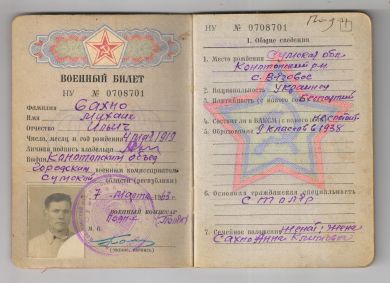 ВОЕННЫЙ БИЛЕТ
НУ № 0708701
Фамилия Сахно
Имя Михаил
Отчество Ильич
Число, месяц и год рождения 1919
Личная подпись владельца
Конотопским объед.
городским военным комиссариатом
Сумской области (республики)
7 марта 63
Военный комиссар
М. П.
НУ № 0708701
I. Общие сведения
1. Место рождения Сумская обл.
Конотопский р-н
с. Вязовое
2. Национальность украинец
3. Партийность Беспартийн
4. Состоит ли в ВЛКСМ
5. Образование 9 классов в 1938
6. Основная гражданская специальность
Столяр
7. Семейное положение женат: жена
Сахно Анна